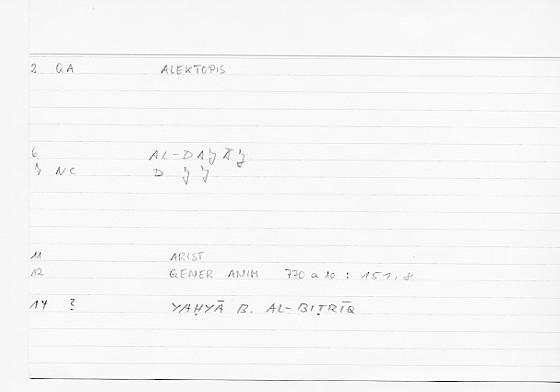 2 QA ALEKTOPIS
6 AL-DAǧĀǧ
7 NC D ǧ ǧ
11 ARIST
12 GENER ANIM 770 a 10 : 151, 8
14 ? YAḤYĀ B. AL-BIṬRĪQ